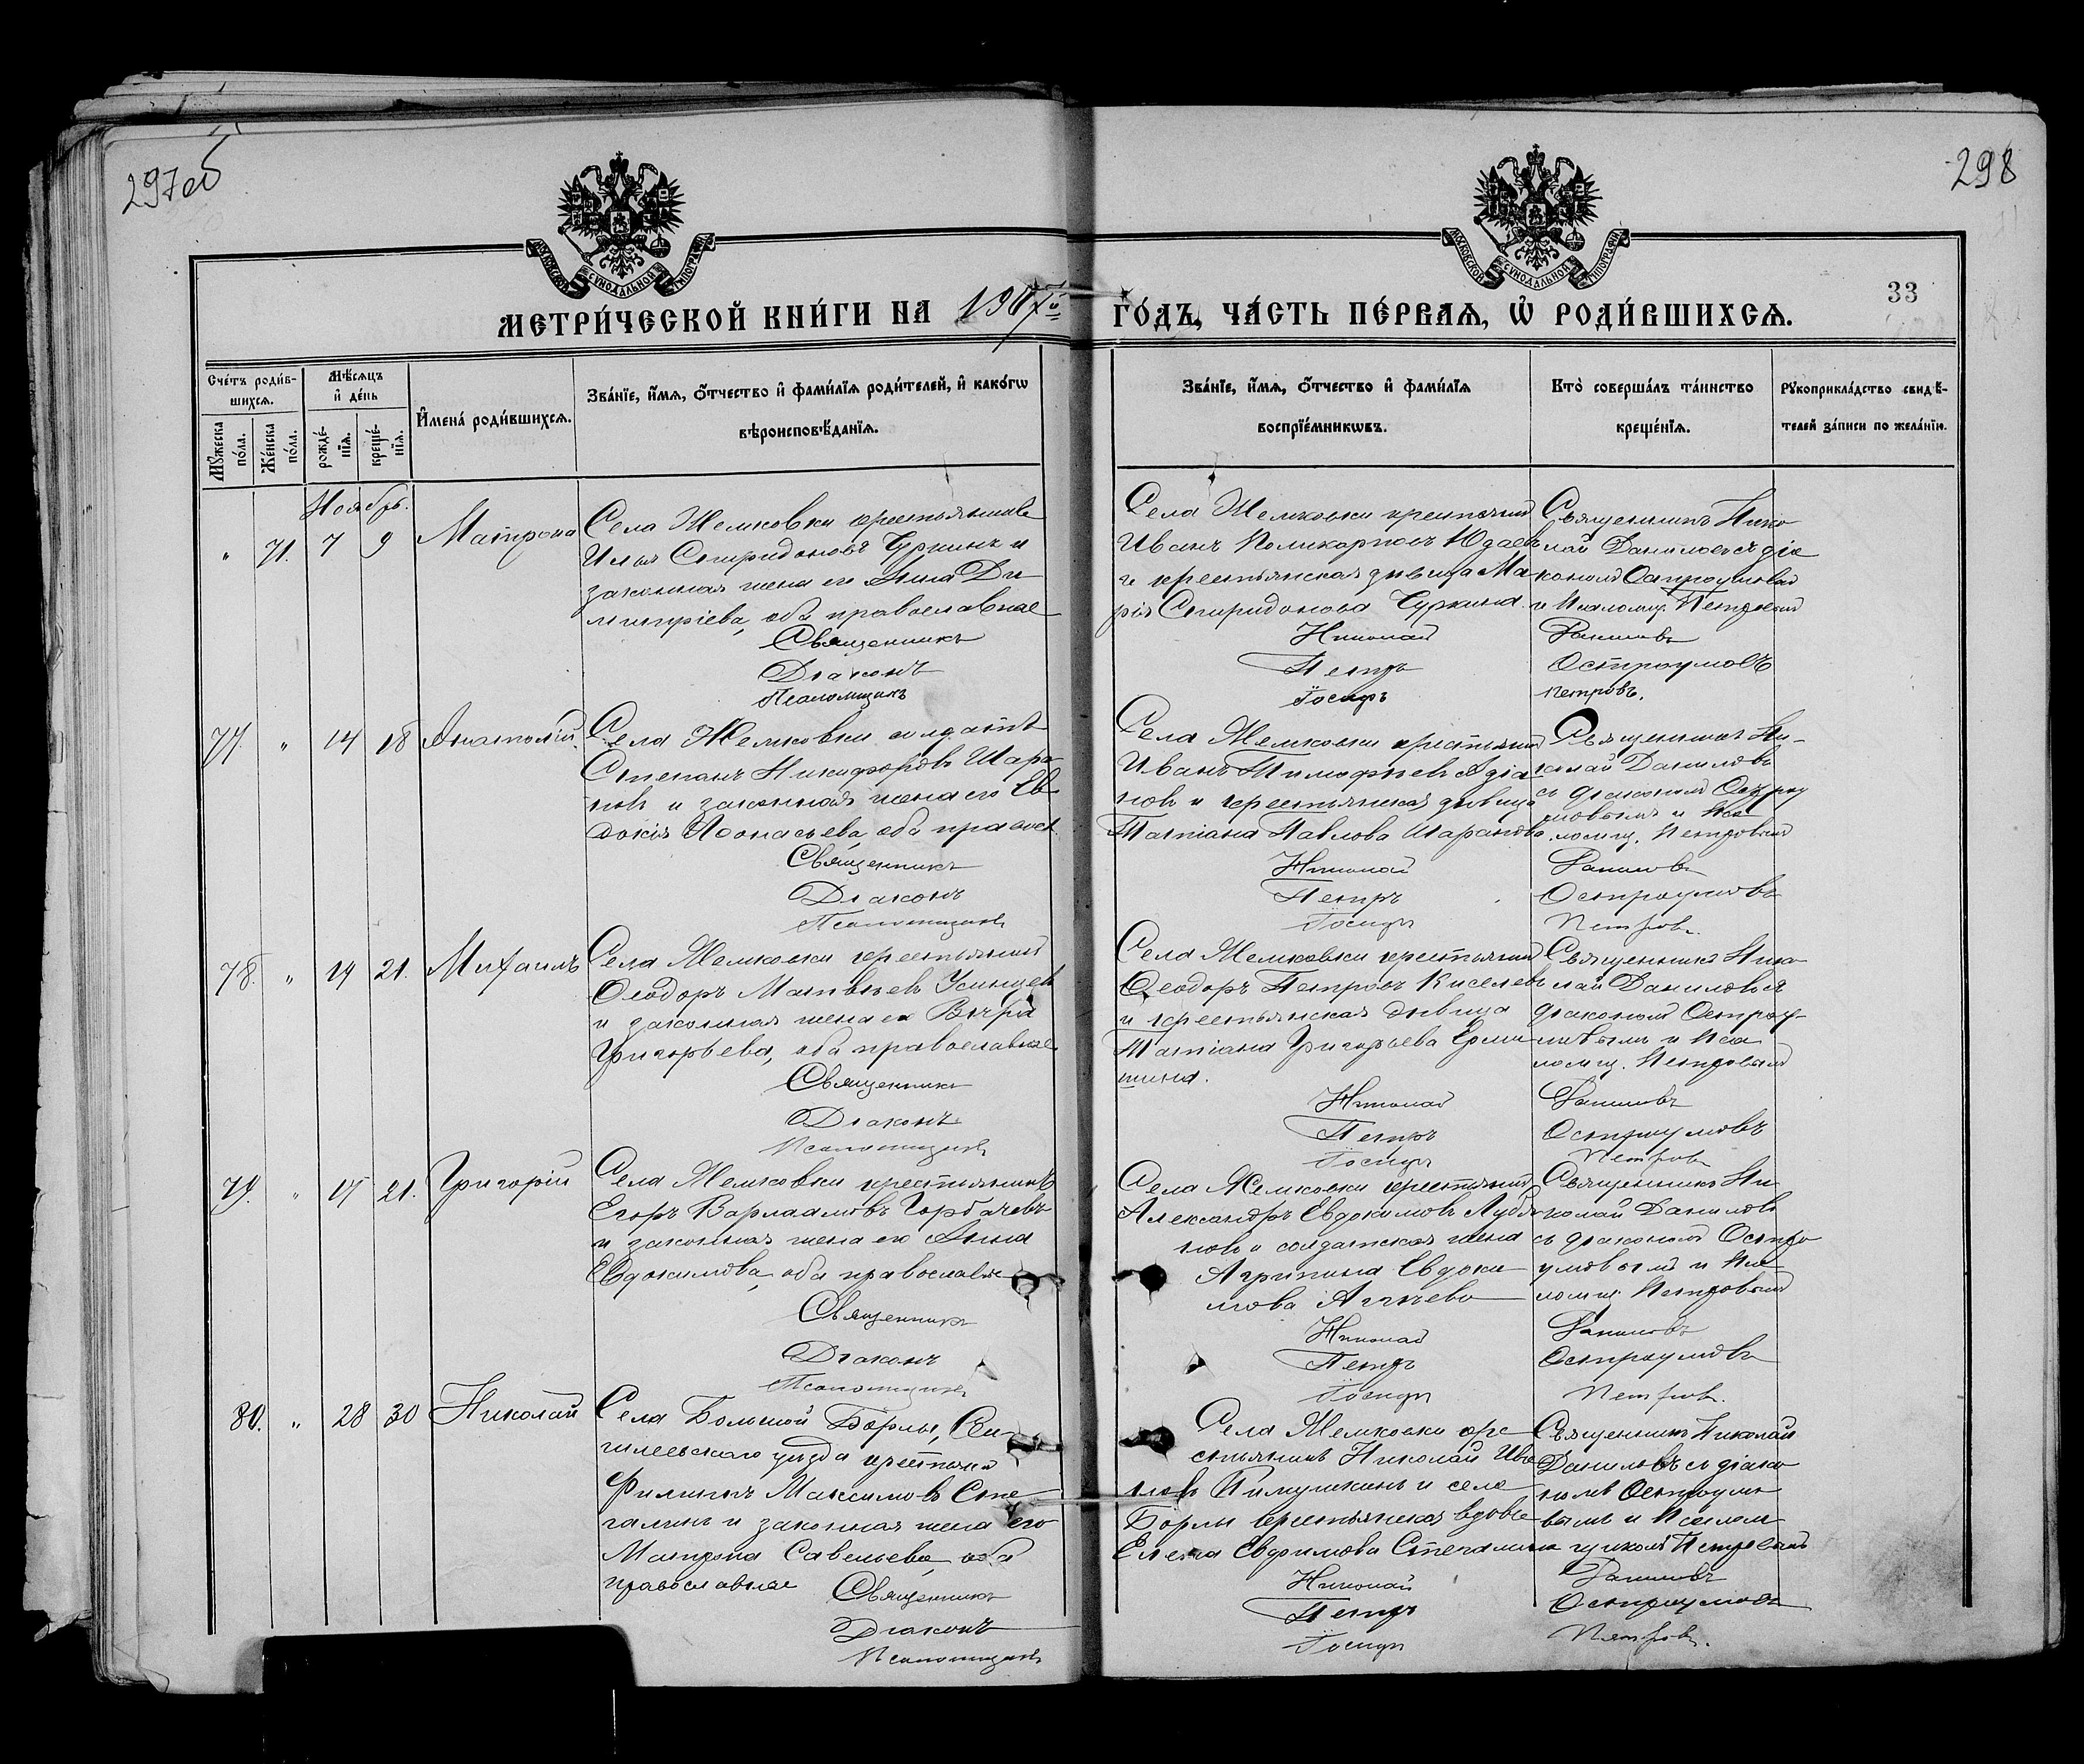 297об
298
33
МОСКОВСКОЙ СУНОДАЛЬНОЙ ТИПОГРАФІИ
МОСКОВСКОЙ СУНОДАЛЬНОЙ ТИПОГРАФІИ
МЕТРИ́ЧЕСКОЙ КНИ́ГИ НА 1907й ГО́ДЪ, ЧА́СТЬ ПЕ́РВАѦ, Ѡ҆ РОДИ́ВШИХСѦ.
Сче́тъ роди́в-
шихсѧ.
Мѣ́сѧцъ
и҆ де́нь
Мꙋ́жеска по́ла.
Же́нска по́ла.
рожде́-
нїѧ.
креще́-
нїѧ.
И҆мена̀ роди́вшихсѧ.
Зва́нїе, и҆́мѧ, ѻ҆́тчество и҆ фами́лїѧ роди́телей, и҆ како́гѡ
вѣроисповѣ́данїѧ.
Зва́нїе, и҆́мѧ, ѻ҆́тчество и҆ фами́лїѧ
воспрїе́мникѡвъ.
Кто̀ соверша́лъ та́инство
креще́нїѧ.
Рꙋкоприкла́дство свидѣ́-
телей за́писи по жела́нїю.
Ноябрь.
" 71. 7 9 Матрона
Села Жемковки крестьянинъ
Илья Спиридоновъ Чуркинъ и
законная жена его Анна Ди
митріева, оба православные
Священникъ
Діаконъ
Псаломщикъ
Села Жемковки крестьянин
Иванъ Поликарповъ Юдаевъ
и крестьянская дѣвица Ма-
рія Спиридонова Чуркина.
Николай
Петръ
Іосифъ
Священникъ Нико
лай Даниловъ съ діа
кономъ Остроумовым
и Псаломщ. Петровым
Даниловъ
Остроумовъ
Петровъ.
77. " 14 18 Анатолій.
Села Жемковки солдатъ
Степанъ Никифоровъ Шара
новъ и законная жена его Ев
докія Аѳонасьева, оба правосл.
Священникъ
Діаконъ
Псаломщикъ
Села Жемковки крестьянин
Иванъ Тимофеевъ
и крестьянская дѣвица
Татіана Павлова Шаранова
Николай
Петръ
Іосифъ
Священникъ Ни-
колай Даниловъ
съ діакономъ Остроу
мовымъ и Пса
ломщ. Петровым
Даниловъ
Остроумовъ
Петровъ.
78. " 19 21. Михаилъ
Села Жемковки крестьянин
Ѳеодоръ Матвѣевъ
и законная жена его Вѣра
Григорьева, оба православные
Священникъ
Діаконъ
Псаломщикъ
Села Жемковки крестьянин
Ѳеодоръ Петровъ Киселевъ
и крестьянская дѣвица
Татіана Григорьева Ерми
шина.
Николай
Петръ
Іосифъ
Священникъ Нико
лай Даниловъ съ
діакономъ Остроу-
мовымъ и Пса
ломщ. Петровым
Даниловъ
Остроумовъ
Петровъ
79. " 21. Григорій
Села Жемковки крестьянинъ
Егоръ Варлаамовъ Горбачевъ
и законная жена его Анна
Евдокимова, оба православные
Священникъ
Діаконъ
Псаломщикъ
Села Жемковки крестьянин
Александръ Евдокимовъ
и солдатская жена
Агрипина Евдоки
мова
Николай
Петръ
Іосифъ
Священникъ Ни
колай Даниловъ
съ діакономъ Остро
умовымъ и Пса
ломщ. Петровым
Даниловъ
Остроумовъ
Петровъ.
80. " 28 30 Николай
Села Большой Борлы, Сен-
гилеевскаго уѣзда крестьянин
Филиппъ Максимовъ Сте
галинъ и законная жена его
Матрона Савельева, оба
православные
Священникъ
Діаконъ
Псаломщикъ
Села Жемковки кре
стьянинъ Николай Ива
новъ и села
Борлы крестьянская вдова
Елена Евфимова Стегалина
Николай
Петръ
Іосифъ
Священникъ Николай
Даниловъ съ діако
номъ Остроумо
вымъ и Псалом
щикомъ Петровымъ
Даниловъ
Остроумовъ
Петровъ.